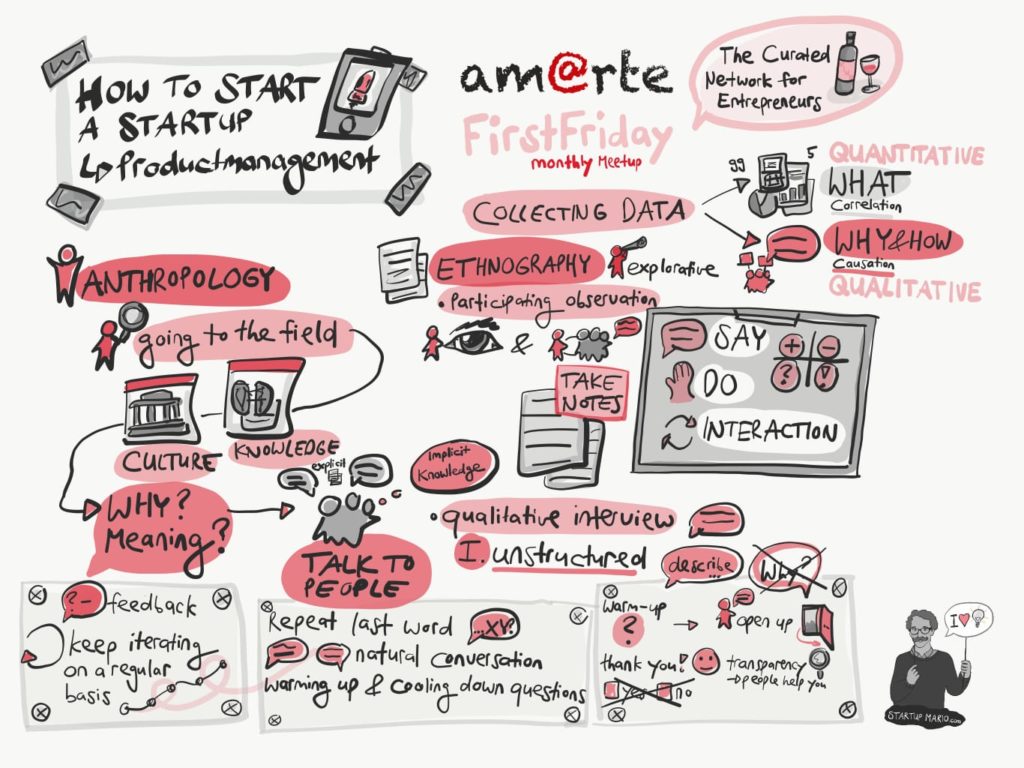 HOW TO START
A STARTUP
↳ Productmanagement
am@rte
FirstFriday
monthly Meetup
The Curated
Network for
Entrepreneurs
COLLECTING DATA
99
5
QUANTITATIVE
WHAT
Correlation
WHY & HOW
Causation
QUALITATIVE
ANTHROPOLOGY
going to the field
CULTURE
KNOWLEDGE
WHY?
Meaning?
explicit
implicit
Knowledge
TALK TO
PEOPLE
ETHNOGRAPHY
explorative
• Participating observation
&
TAKE
NOTES
SAY
DO
INTERACTION
+ -
? !
• qualitative interview
I. unstructured
describe...
Why?
?-
feedback
keep iterating
on a regular
basis
Repeat last word
...XY?
natural conversation
warming up & cooling down questions
warm-up
?
→ open up
thank you!
transparency
→ people help you
yes
no
I ♥
STARTUP MARIO.com